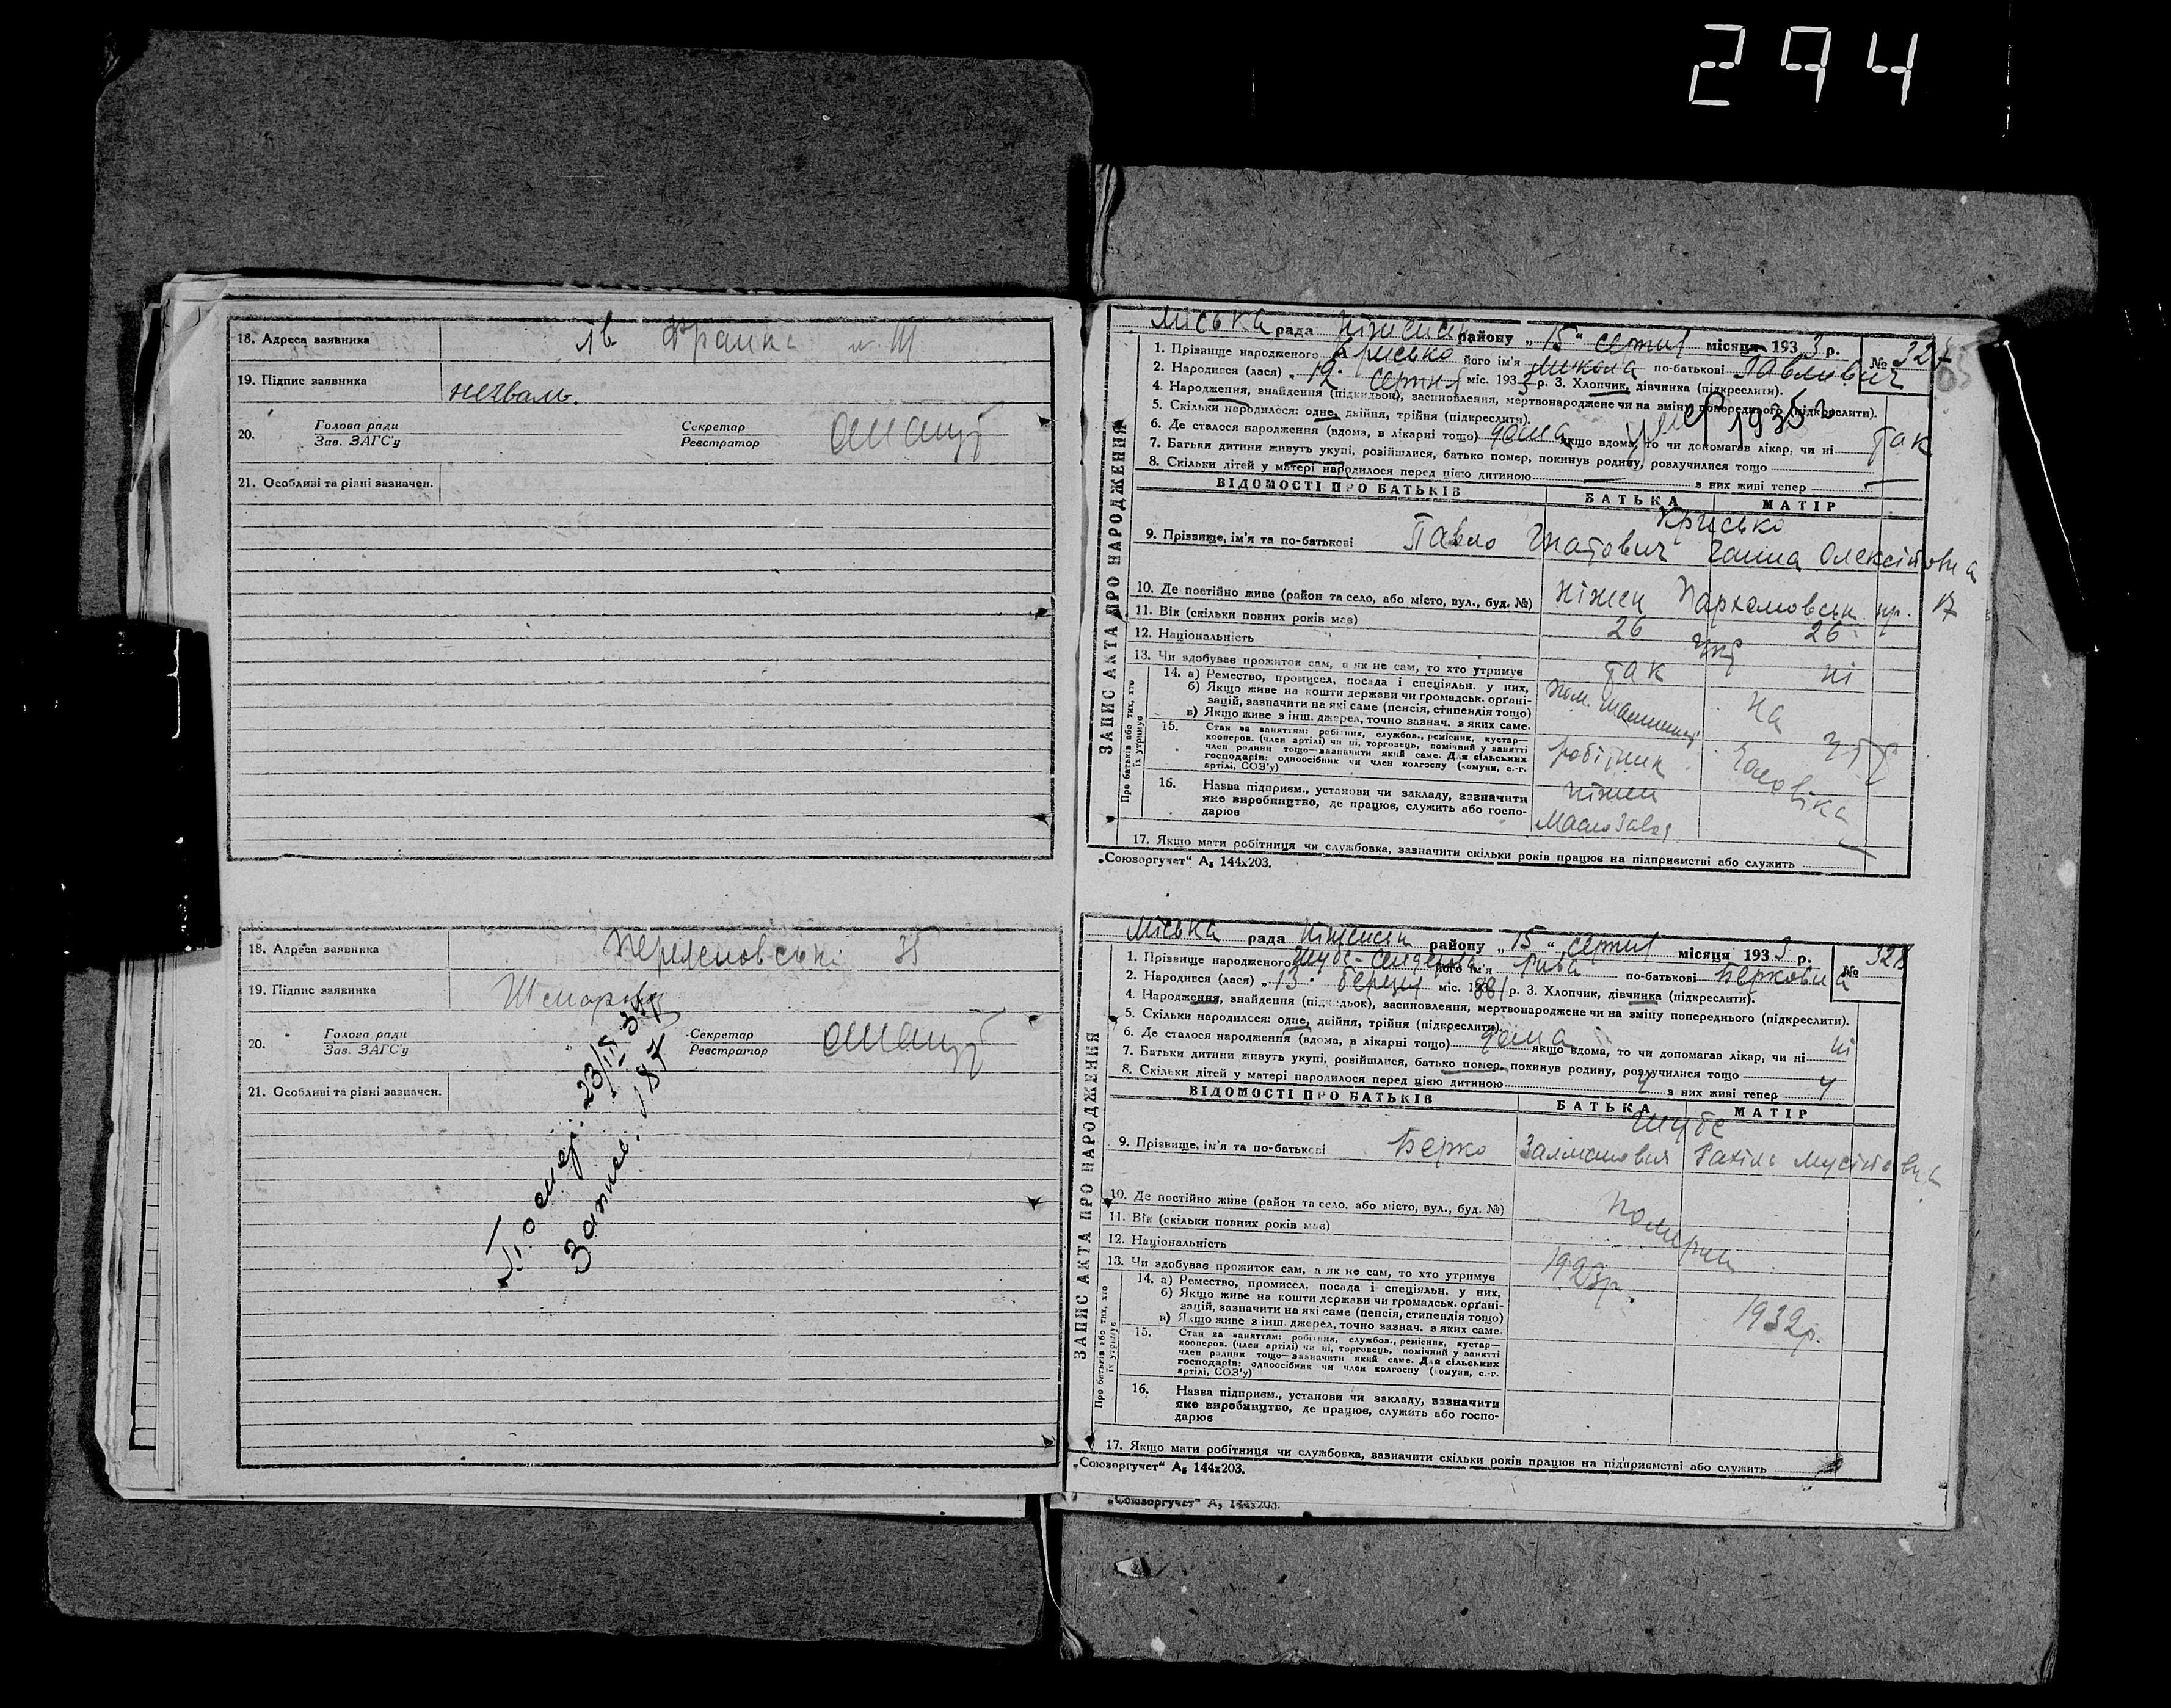 294
18. Адреса заявника
19. Підпис заявника
20. Голова ради Секретар
Зав. ЗАГС'у Реєстратор
21. Особливі та різні зазначен.
18. Адреса заявника 35
19. Підпис заявника
20. Голова ради Секретар
Зав. ЗАГС'у Реєстратор
21. Особливі та різні зазначен.
Міська рада району „ 15 “ місяця 1933 р. № 327
1. Прізвище народженого Крисько його ім'я Микола по-батькові Павлович
2. Народився (лася) „ 12 міс. 1933 р. 3. Хлопчик, дівчинка (підкреслити).
4. Народження, знайдення (підкидьок), засиновлення, мертвонароджене чи на зміну попереднього (підкреслити).
5. Скільки народилося: одне, двійня, трійня (підкреслити).
6. Де сталося народження (вдома, в лікарні тощо) дома якщо вдома, то чи допомагав лікар, чи ні так
7. Батьки дитини живуть укупі, розійшлися, батько помер, покинув родину, розлучилися тощо
8. Скільки дітей у матері народилося перед цією дитиною — з них живі тепер —
ЗАПИС АКТА ПРО НАРОДЖЕННЯ
ВІДОМОСТІ ПРО БАТЬКІВ БАТЬКА МАТІР
Крисько
9. Прізвище, ім'я та по-батькові Павло Гнатович Ганна Олексіївна
10. Де постійно живе (район та село, або місто, вул., буд. №) Ніжен 17
11. Вік (скільки повних років має) 26 26
12. Національність Укр
13. Чи здобуває прожиток сам, а як не сам, то хто утримує так ні
Про батьків або тих, хто їх утримує
14. а) Ремество, промисел, посада і спеціяльн. у них,
б) Якщо живе на кошти держави чи громадськ. органі-
зацій, зазначити на які саме (пенсія, стипендія тощо)
в) Якщо живе з інш. джерел, точно зазнач. з яких саме.
на утр
15. Стан за заняттям: робітник, службов., ремісник, кустар—
кооперов. (член артілі) чи ні, торговець, помічний у занятті
член родини тощо—зазначити який саме. Для сільських
господарів: одноосібник чи член колгоспу (комуни, с.-г.
артілі, СОЗ'у)
робітник Чоловіка
16. Назва підприєм., установи чи закладу, зазначити
яке виробництво, де працює, служить або госпо-
дарює
Ніжен
Маслозавод
17. Якщо мати робітниця чи службовка, зазначити скільки років працює на підприємстві або служить —
„Союзоргучет“ А₅ 144х203.
Міська рада району „ 15 “ місяця 1933 р. № 328
1. Прізвище народженого його ім'я Рива по-батькові Берковна
2. Народився (лася) „ 13 березня міс. 1881 р. 3. Хлопчик, дівчинка (підкреслити).
4. Народження, знайдення (підкидьок), засиновлення, мертвонароджене чи на зміну попереднього (підкреслити).
5. Скільки народилося: одне, двійня, трійня (підкреслити).
6. Де сталося народження (вдома, в лікарні тощо) дома якщо вдома, то чи допомагав лікар, чи ні ні
7. Батьки дитини живуть укупі, розійшлися, батько помер, покинув родину, розлучилися тощо
8. Скільки дітей у матері народилося перед цією дитиною 4 з них живі тепер 4
ЗАПИС АКТА ПРО НАРОДЖЕННЯ
ВІДОМОСТІ ПРО БАТЬКІВ БАТЬКА МАТІР
Шубе
9. Прізвище, ім'я та по-батькові Берко Залманович Рахіль Мусіївна
10. Де постійно живе (район та село, або місто, вул., буд. №)
11. Вік (скільки повних років має)
Померли
12. Національність
13. Чи здобуває прожиток сам, а як не сам, то хто утримує 1923р.
Про батьків або тих, хто їх утримує
14. а) Ремество, промисел, посада і спеціяльн. у них,
б) Якщо живе на кошти держави чи громадськ. органі-
зацій, зазначити на які саме (пенсія, стипендія тощо)
в) Якщо живе з інш. джерел, точно зазнач. з яких саме
1932р.
15. Стан за заняттям: робітник, службов., ремісник, кустар—
кооперов. (член артілі) чи ні, торговець, помічний у занятті
член родини тощо—зазначити який саме. Для сільських
господарів: одноосібник чи член колгоспу (комуни, с.-г.
артілі, СОЗ'у)
16. Назва підприєм., установи чи закладу, зазначити
яке виробництво, де працює, служить або госпо-
дарює
17. Якщо мати робітниця чи службовка, зазначити скільки років працює на підприємстві або служить
„Союзоргучет“ А₅ 144х203.
„Союзоргучет“ А₅ 144х203.